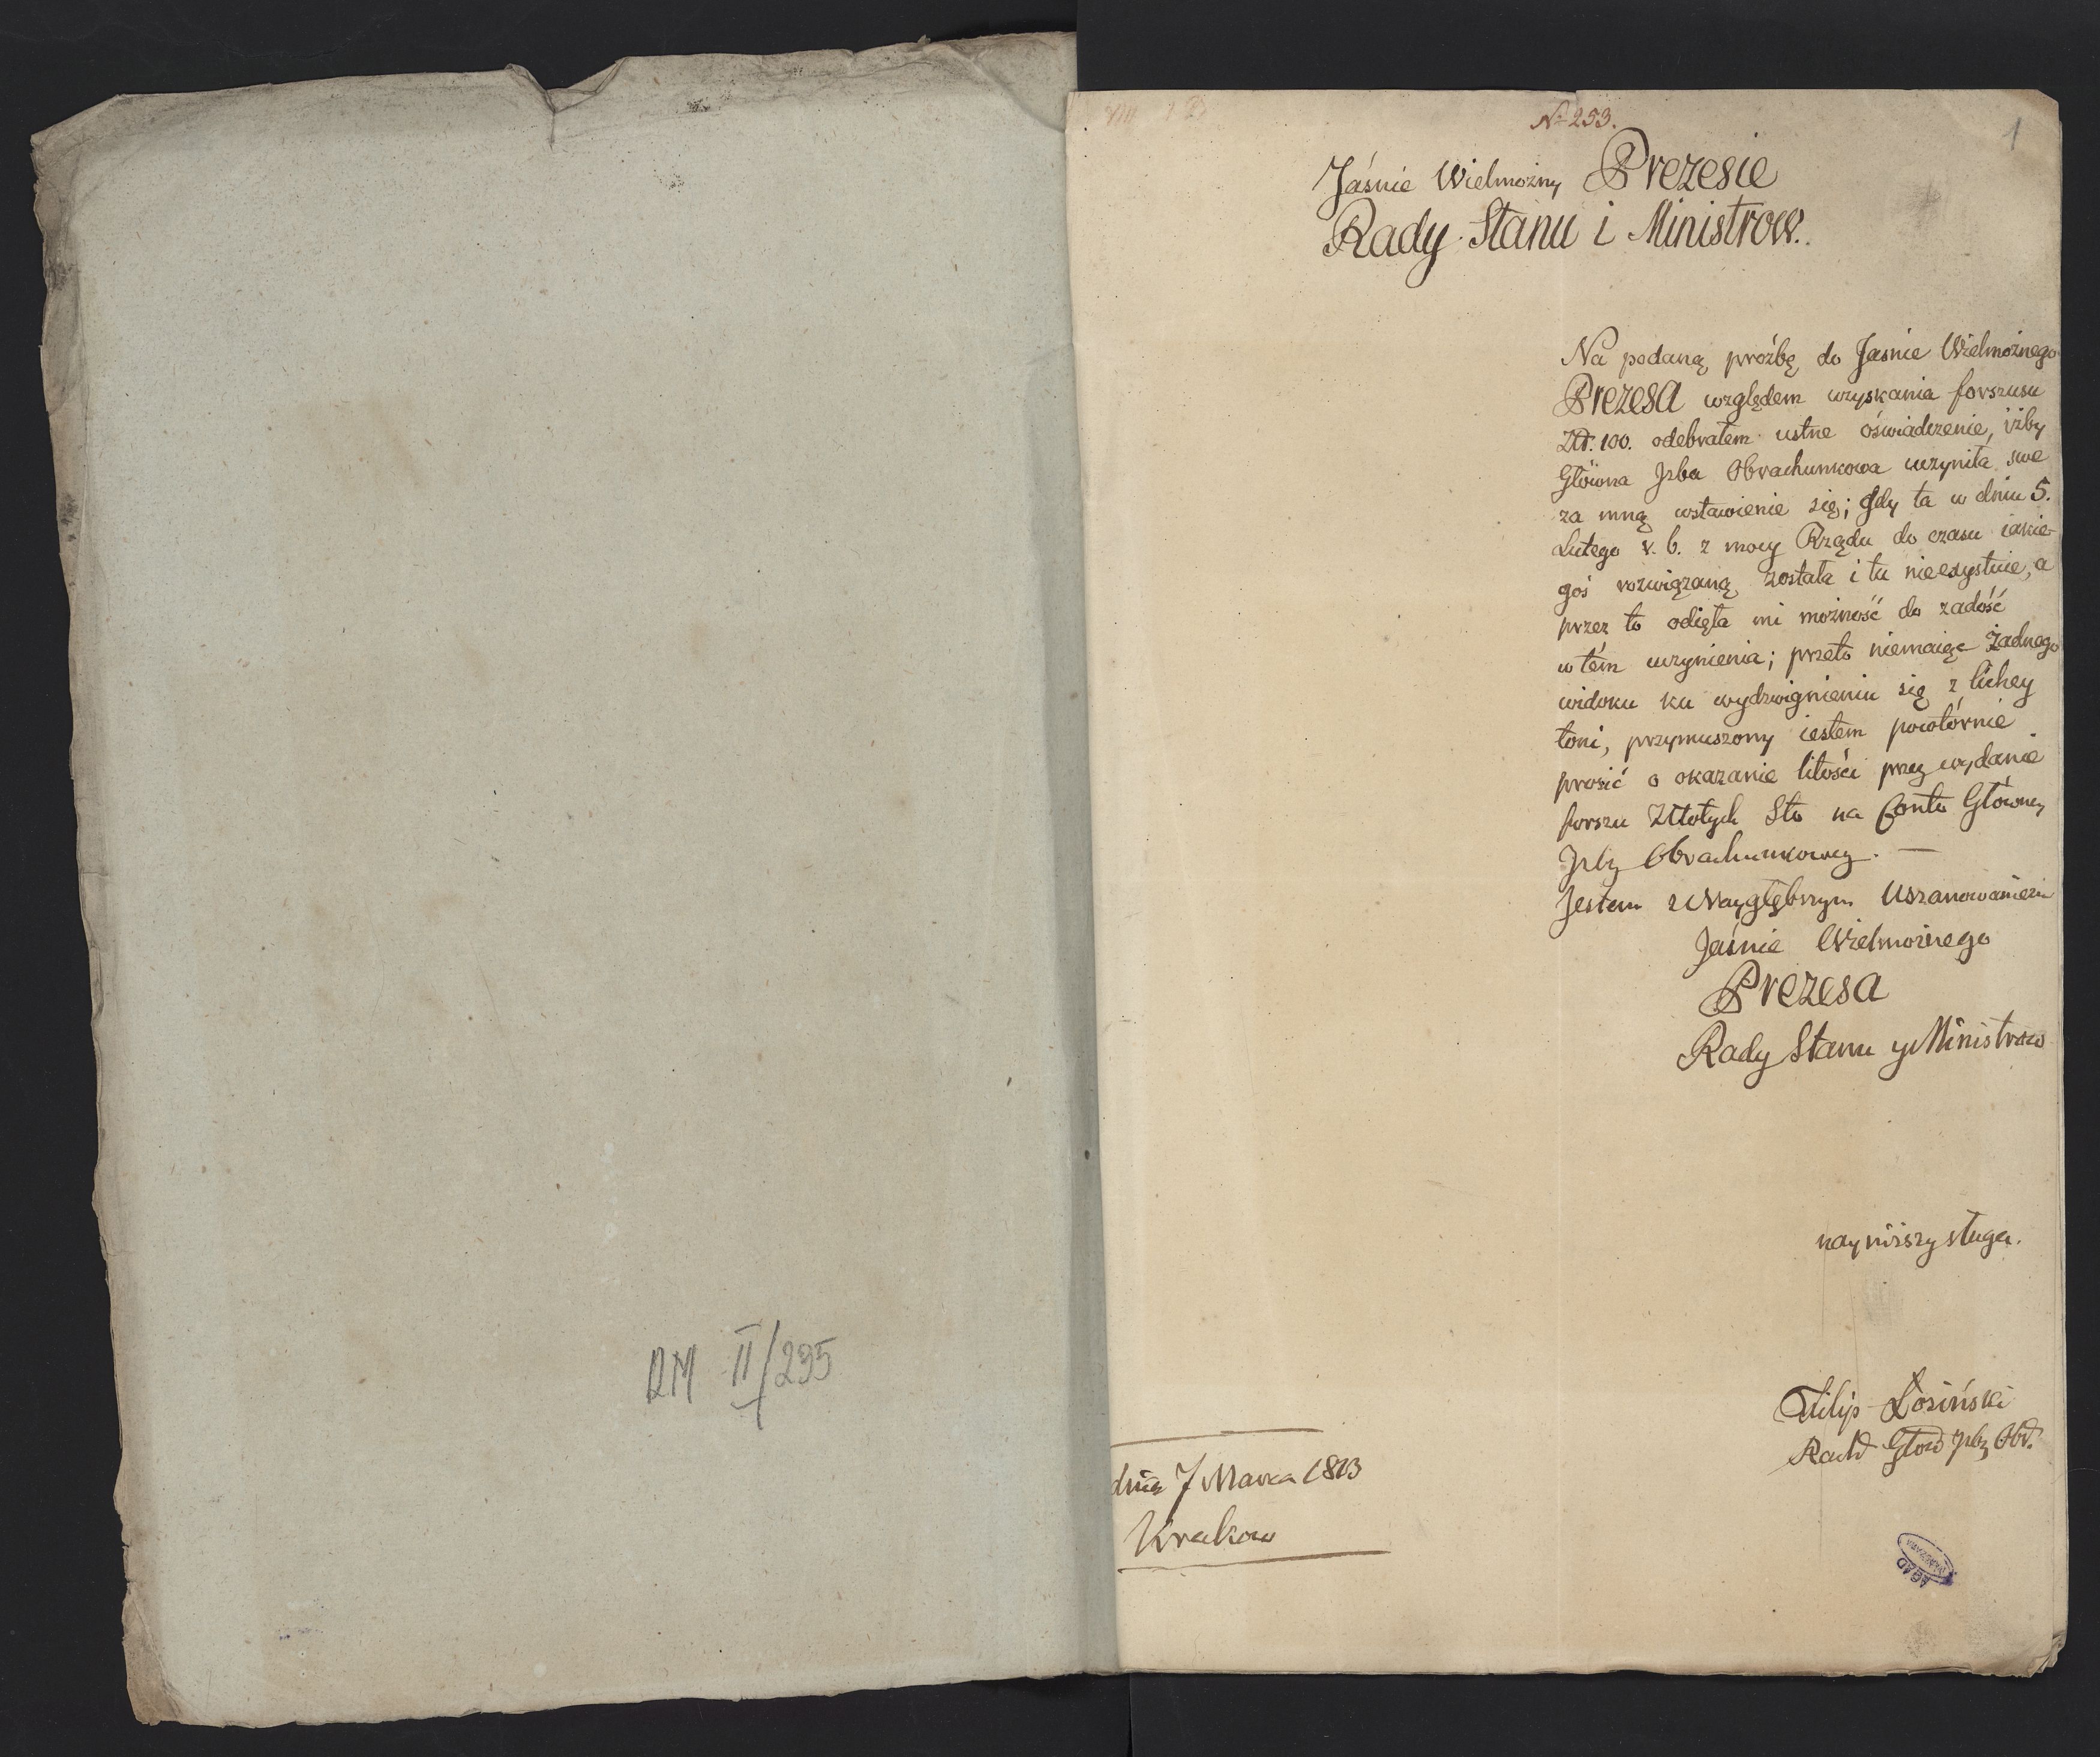 RM II/295
No 253.
1
Jaśnie Wielmożny Prezesie
Rady Stanu i Ministrow.
Na podaną prożbę do Jasnie Wielmożnego
Prezesa względem uzyskania forszusu
Złt. 100. odebrałem ustne oświadczenie, iżby
Główna Jzba Obrachunkowa uczyniła swe
za mną wstawienie się; Gdy ta w dniu 5.
Lutego r. b. z mocy Rządu do czasu iakie-
goś rozwiązaną została i tu nieexystuie, a
przez to odięta mi możność do zadość
w tém uczynienia; przeto niemaiąc żadnego
widoku ku wydzwignieniu się z lichey
toni, przymuszony iestem powtórnie
prosić o okazanie litości przez wydanie
forszu Złłotych Sto na Conto Główney
Jzby Obrachunkowey. —
Jestem z Naygłębszym Uszanowaniem
Jaśnie Wielmożnego
Prezesa
Rady Stanu y Ministrow
nayniższy sługa.
Filip Łosiński
Głow Jzby Obr.
dnia 7 Marca 1813
Krakow
AGAD
WARSZAWA